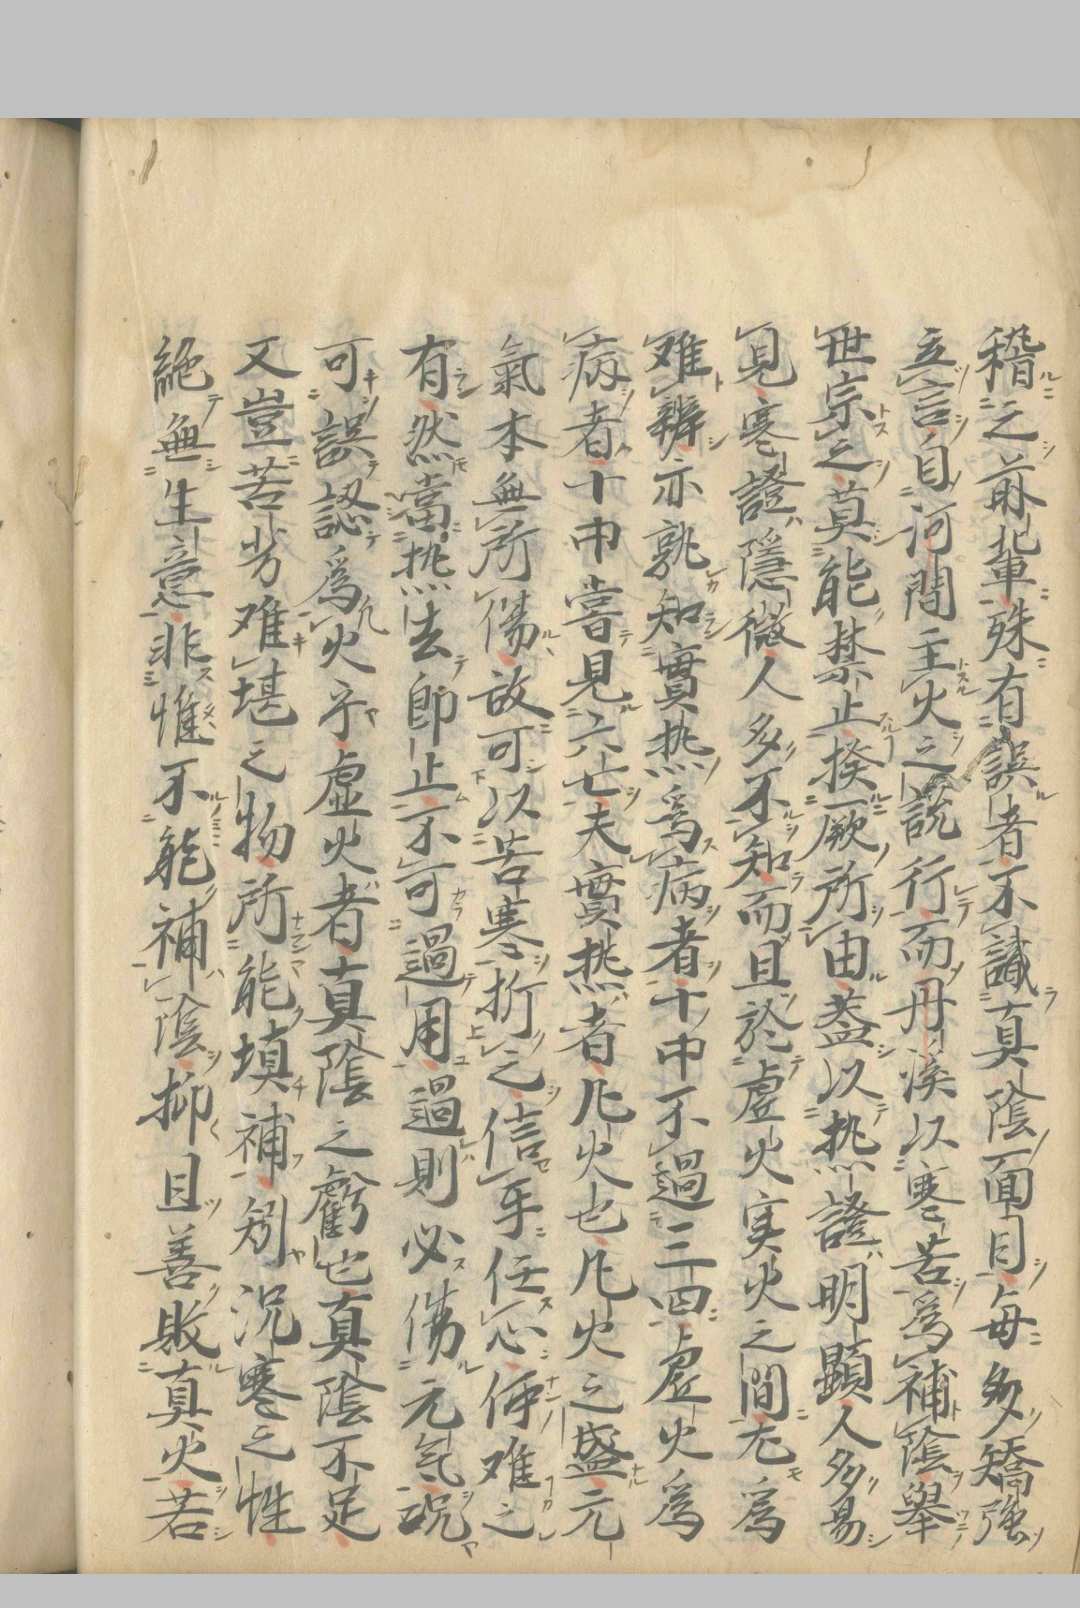 稽之前輩殊有誤者不識真陰面目毎多矯強
立言自河間主火之說行而丹溪以寒苦為補陰舉
世宗之莫能禁止揆厥所由蓋以熱證明顕人多易
見寒證隱微人多不知而且於虛火実火之間尤為
难辨亦孰知實热為病者十中不過三四虛火為
病者十中嘗見六七夫實热者凡火也凡火之盛元
氣本無所傷故可以苦寒折之信手任心何难之
有然當热去即止不可過用過則必傷元气况
可誤認為火乎虛火者真陰之虧也真陰不足
又豈苦劣难堪之物所能填補矧況寒之性
絶無生意非惟不能補陰抑且善敗真火若